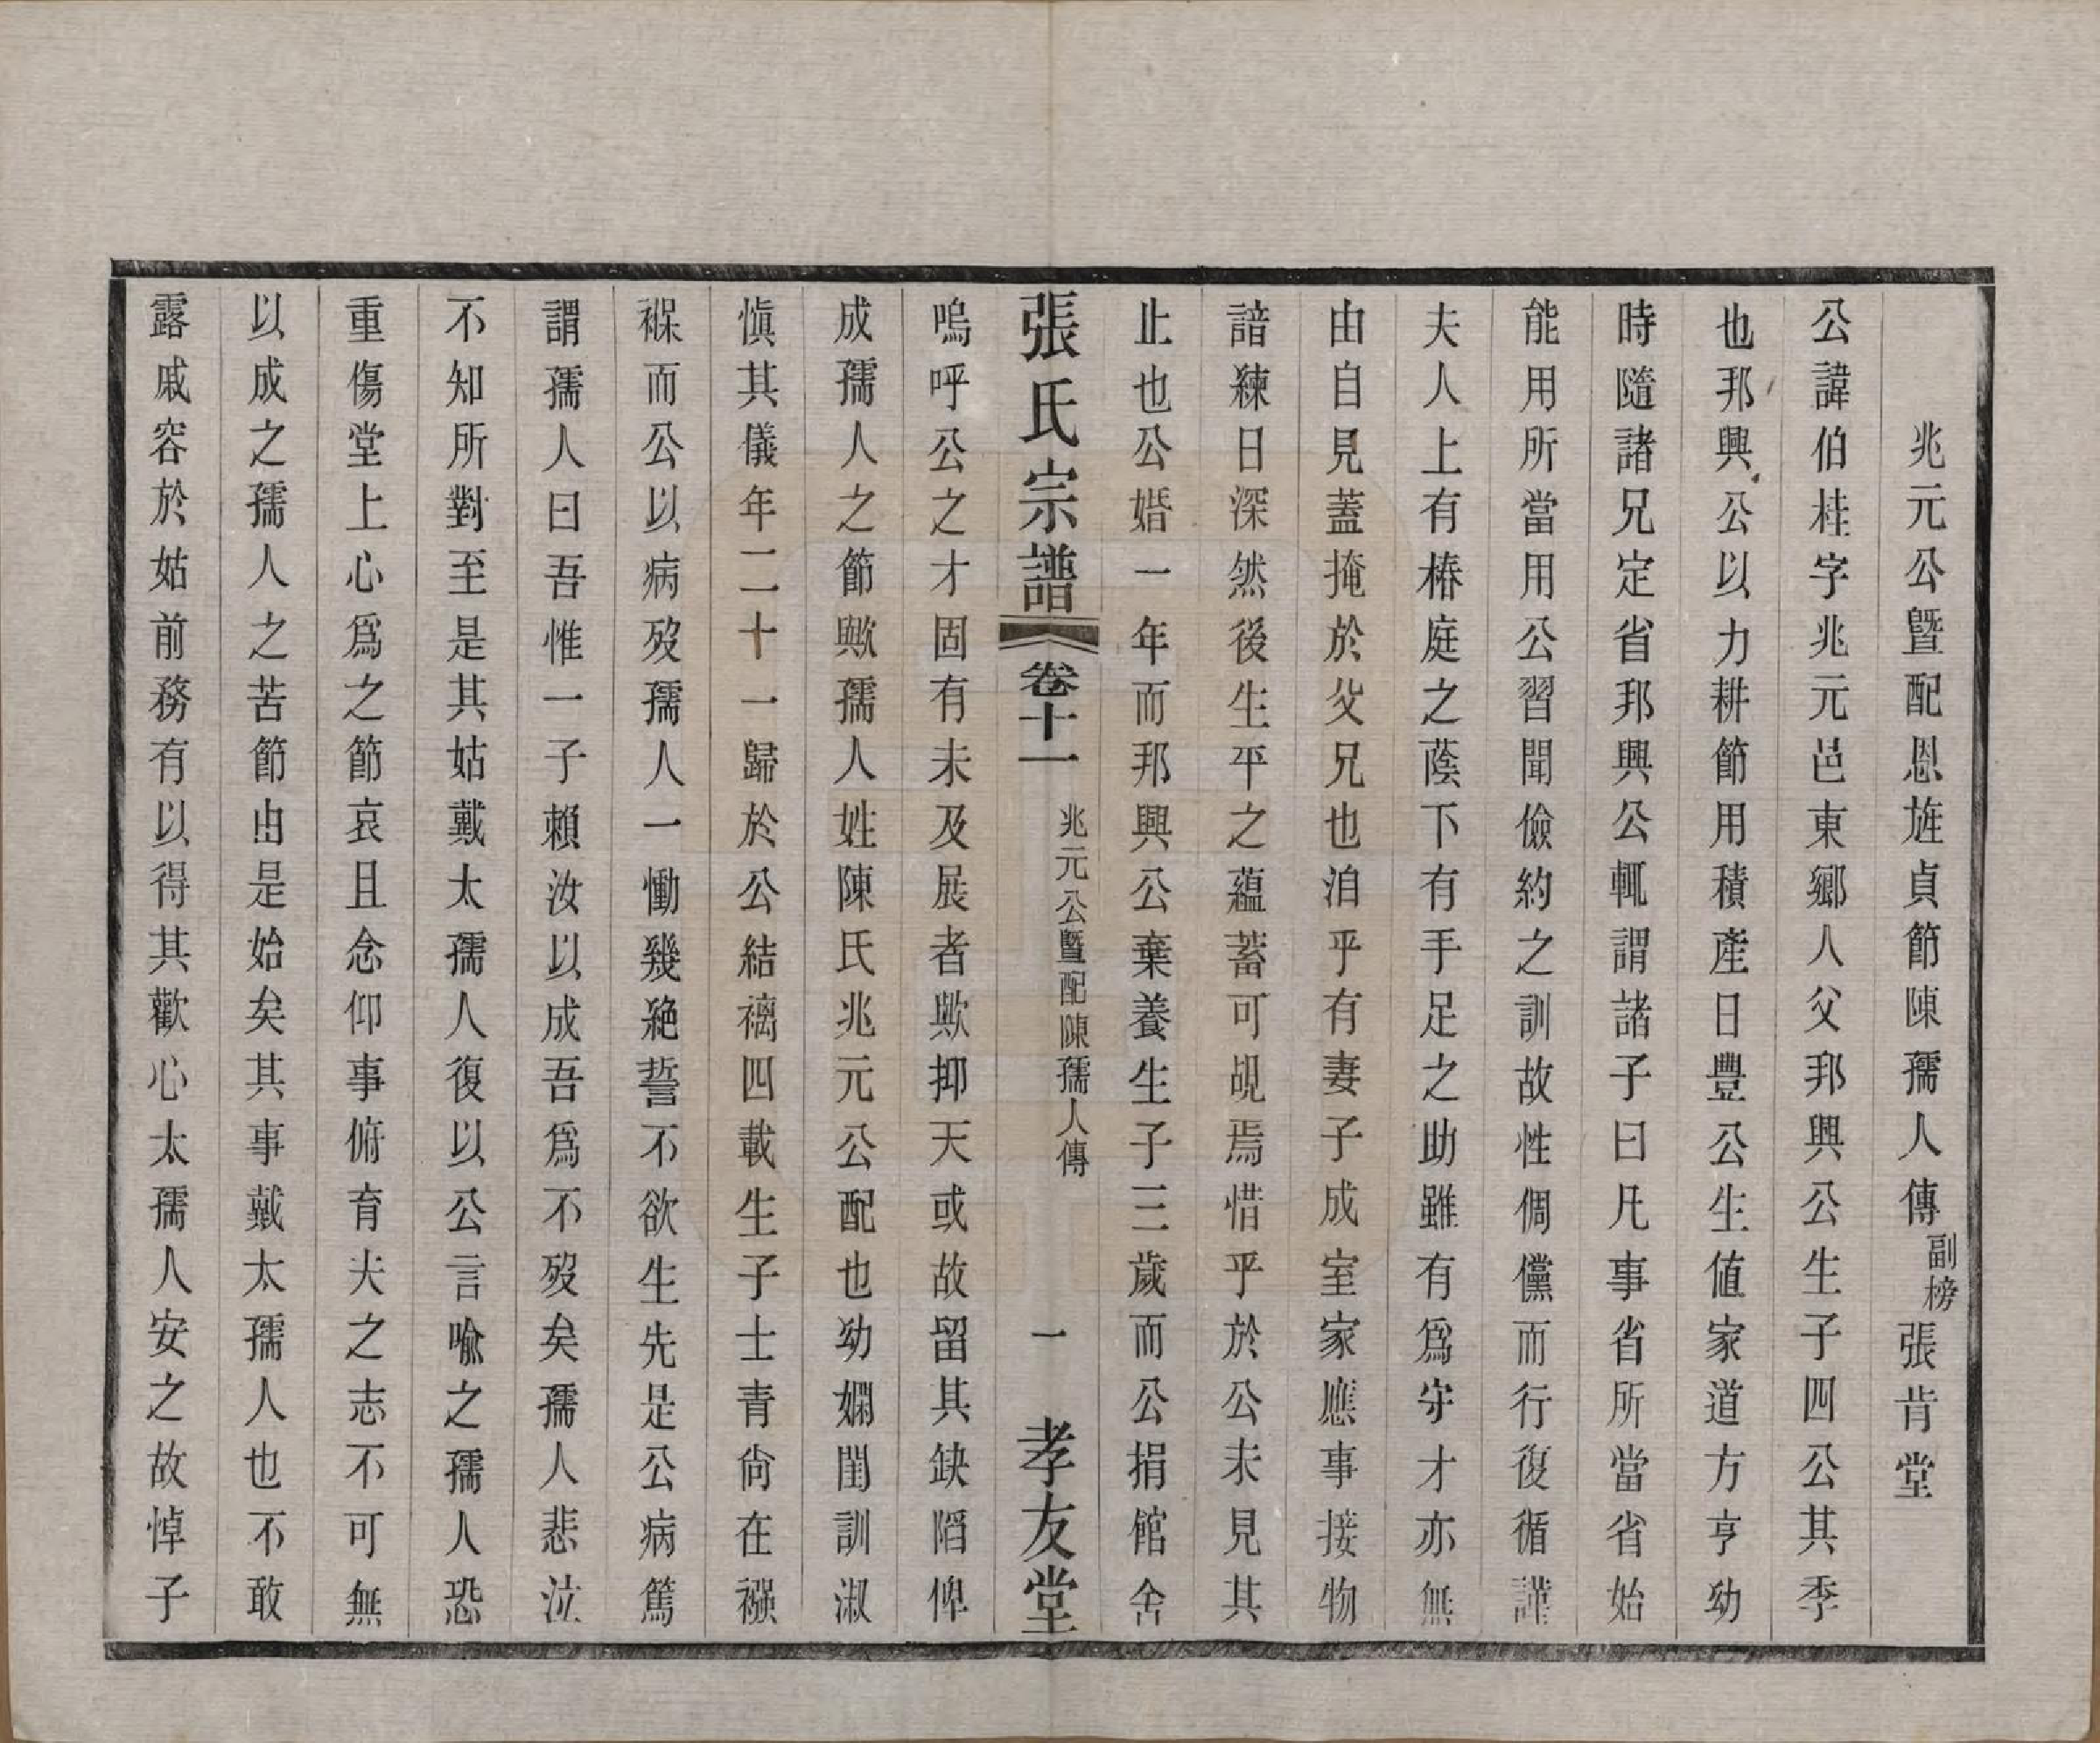 兆元公暨配恩旌貞節陳孺人傳 副榜張肯堂
公諱伯桂字兆元邑東鄉人父邦興公生子四公其季
也邦興公以力耕節用積產日豐公生値家道方亨幼
時隨諸兄定省邦興公輒謂諸子曰凡事省所當省始
能用所當用公習聞儉約之訓故性倜儻而行復循謹
夫人上有椿庭之蔭下有手足之助雖有爲守才亦無
由自見蓋掩於父兄也洎乎有妻子成室家應事接物
諳練日深然後生平之蘊蓄可覘焉惜乎於公未見其
止也公婚一年而邦興公棄養生子三歲而公捐館舍
張氏宗譜 卷十一 兆元公暨配陳孺人傳 一 孝友堂
嗚呼公之才固有未及展者歟抑天或故留其缺陷俾
成孺人之節歟孺人姓陳氏兆元公配也幼嫻閨訓淑
愼其儀年二十一歸於公結褵四載生子士青尙在襁
褓而公以病歿孺人一慟幾絶誓不欲生先是公病篤
謂孺人曰吾惟一子賴汝以成吾爲不歿矣孺人悲泣
不知所對至是其姑戴太孺人復以公言喻之孺人恐
重傷堂上心爲之節哀且念仰事俯育夫之志不可無
以成之孺人之苦節由是始矣其事戴太孺人也不敢
露戚容於姑前務有以得其歡心太孺人安之故悼子